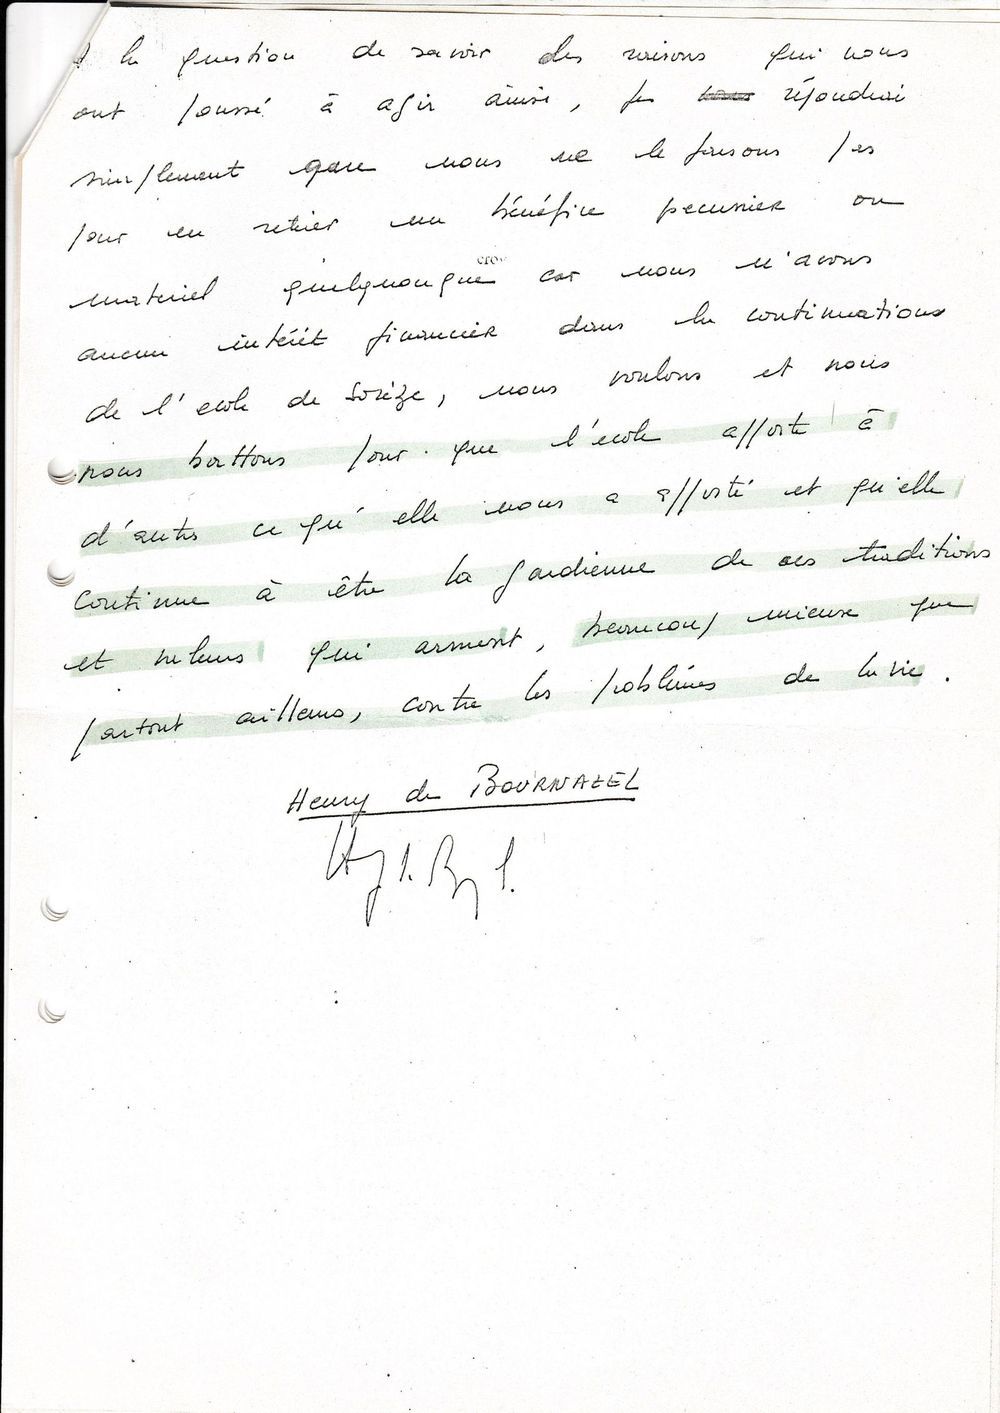 à la question de savoir des raisons qui nous
ont poussé à agir ainsi, je répondrai
simplement que nous ne le faisons pas
pour en retirer un bénéfice pecunier ou
materiel quelquonque car nous n'avons
aucun intérêt financier dans la continuations
de l'ecole de Sorèze, nous voulons et nous
nous battons pour que l'école apporte à
d'autres ce qu'elle nous a apporté et qu'elle
continue à être la gardienne de ces traditions
et valeurs qui arment, beaucoup mieux que
partout ailleurs, contre les problèmes de la vie.
Henry de BOURNAZEL